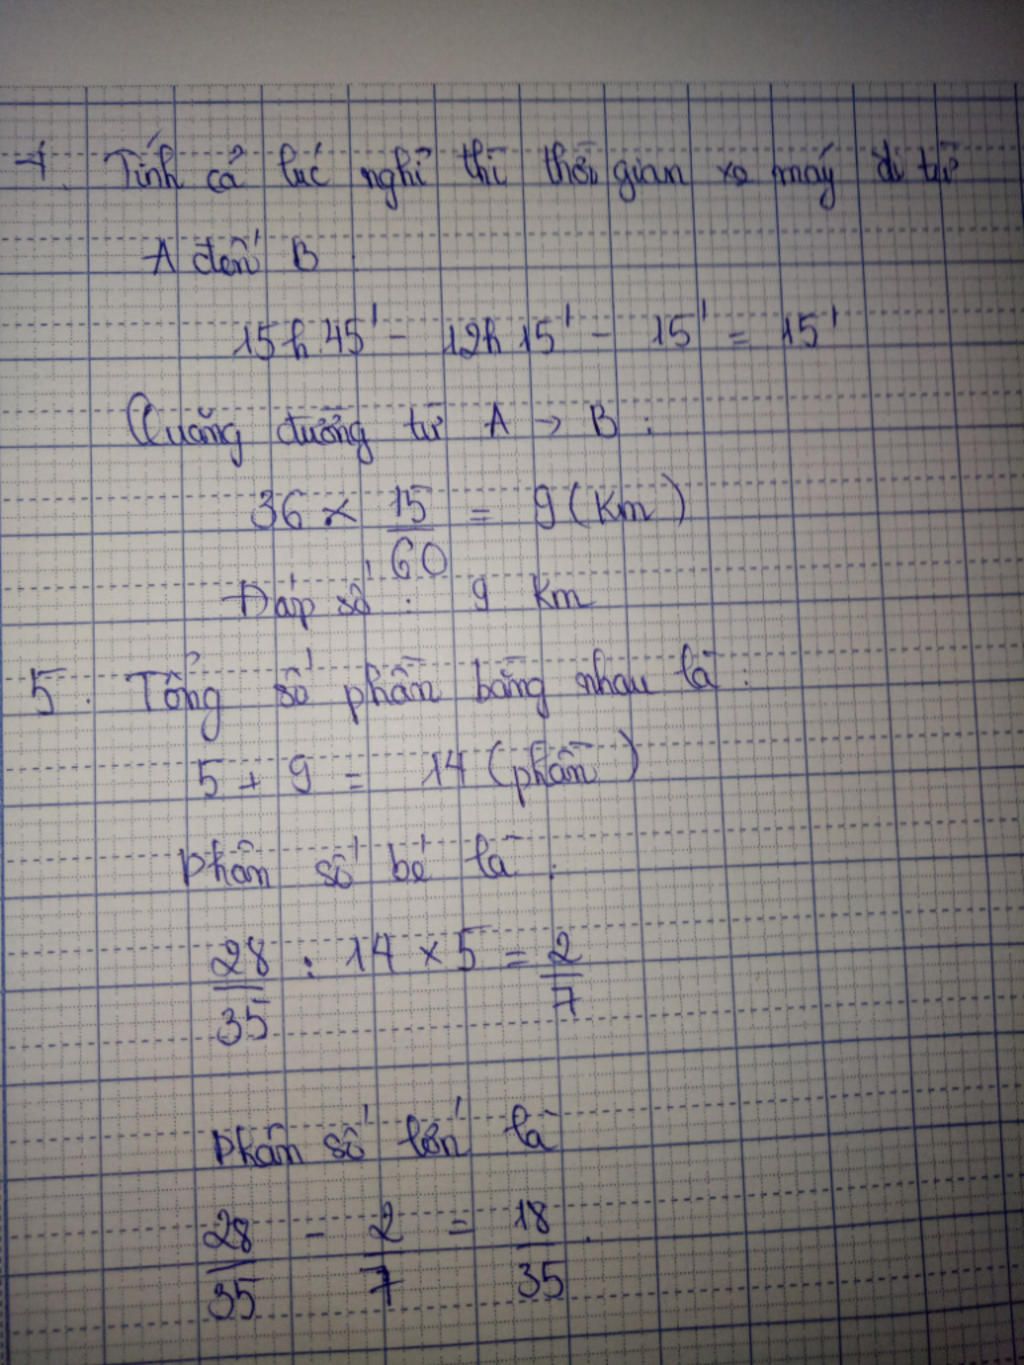 4. Tính cả lúc nghỉ thì thời gian xe máy đi từ
A đến B
15h45' - 12h15' - 15' = 15'
Quãng đường từ A → B :
36 × 15/60 = 9 (Km)
Đáp số : 9 Km
5. Tổng số phần bằng nhau là :
5 + 9 = 14 (phần)
Phân số bé là :
28/35 : 14 × 5 = 2/7
Phân số lớn là
28/35 - 2/7 = 18/35.